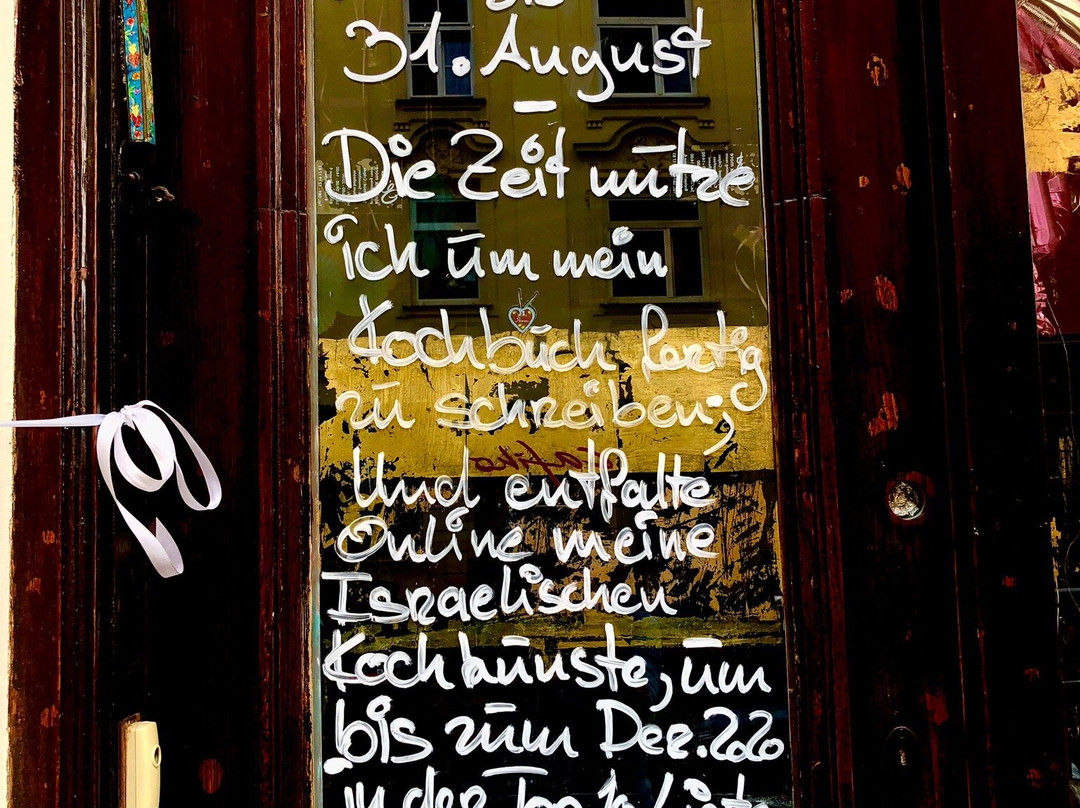 31. August
–
Die Zeit nutze
ich um mein
Kochbuch fertig
zu schreiben;
Und entfalte
Online meine
Israelischen
Kochkunste, um
bis zum Dez.2020
in der